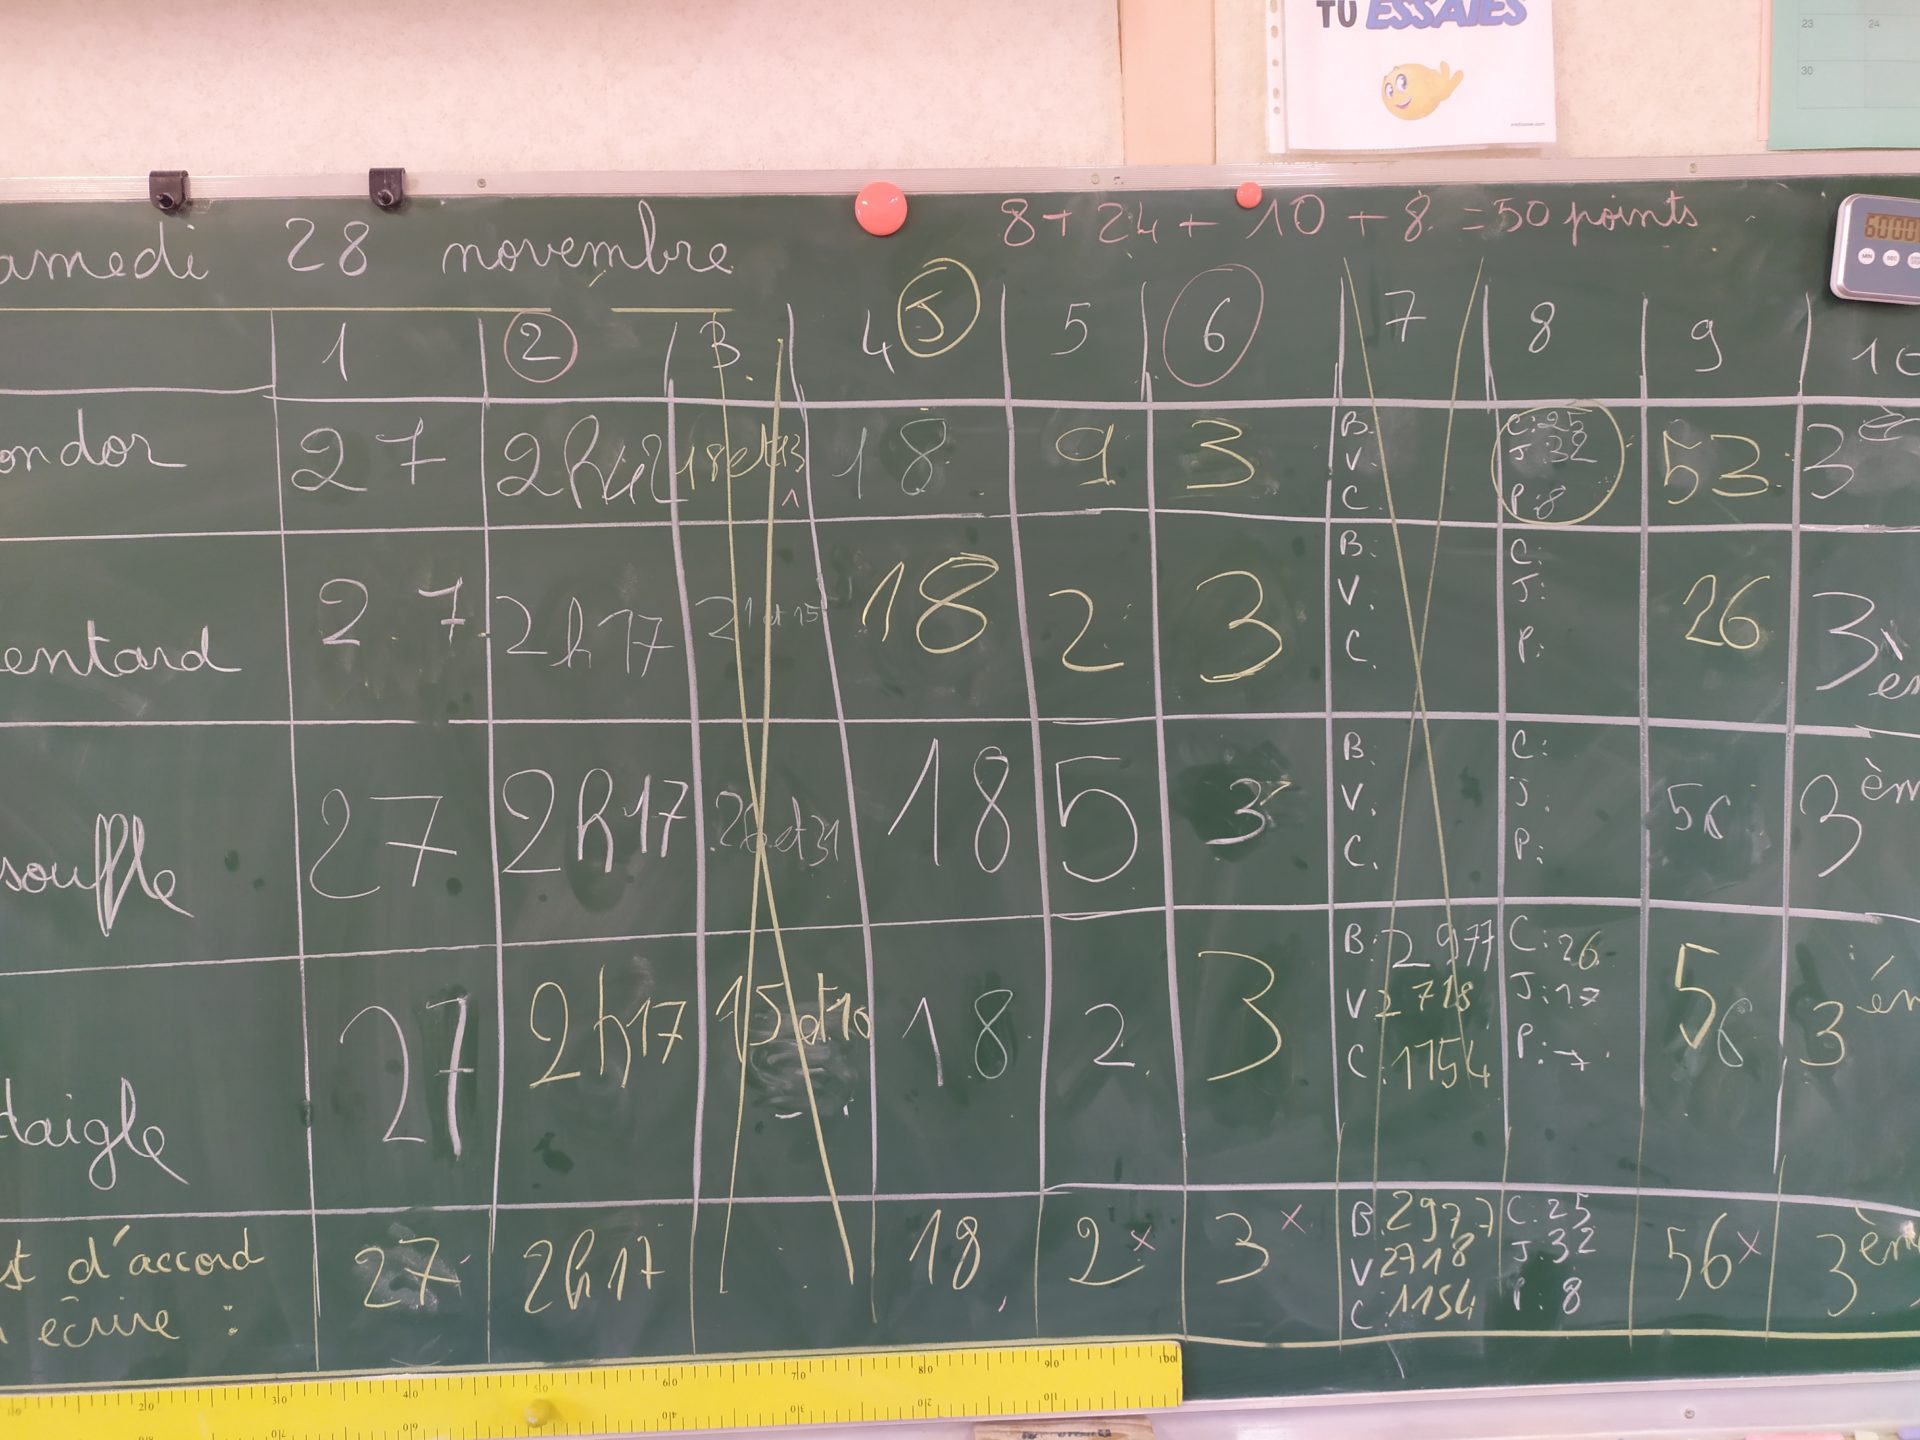 TU ESSAIES
23 24
30
8 + 24 + 10 + 8 = 50 points
amedi 28 novembre
6000
1 2 3 4 J 5 6 7 8 9 10
ondor 27 18 et 13 18 9 3 B. V. C. C:25 J:32 P:8 53 3è
1
entard 27 2h17 21 et 15 18 2 3 B: V. C. C: J: P: 26 3èm
souffle 27 2h17 et 31 18 5 3 B: V. C. C: J. P: 56 3èm
taigle 27 2h17 15 et 10 18 2 3 B:2 977 V 2 718 C.1154 C:26 J:17 P:7 56 3ém
st d'accord
écrire : 27 2h17 18 2 x 3 x B.2977 V 2718 C:1154 C:25 J:32 P:8 56 x 3èm
20 30 40 50 60 70 80 90 100